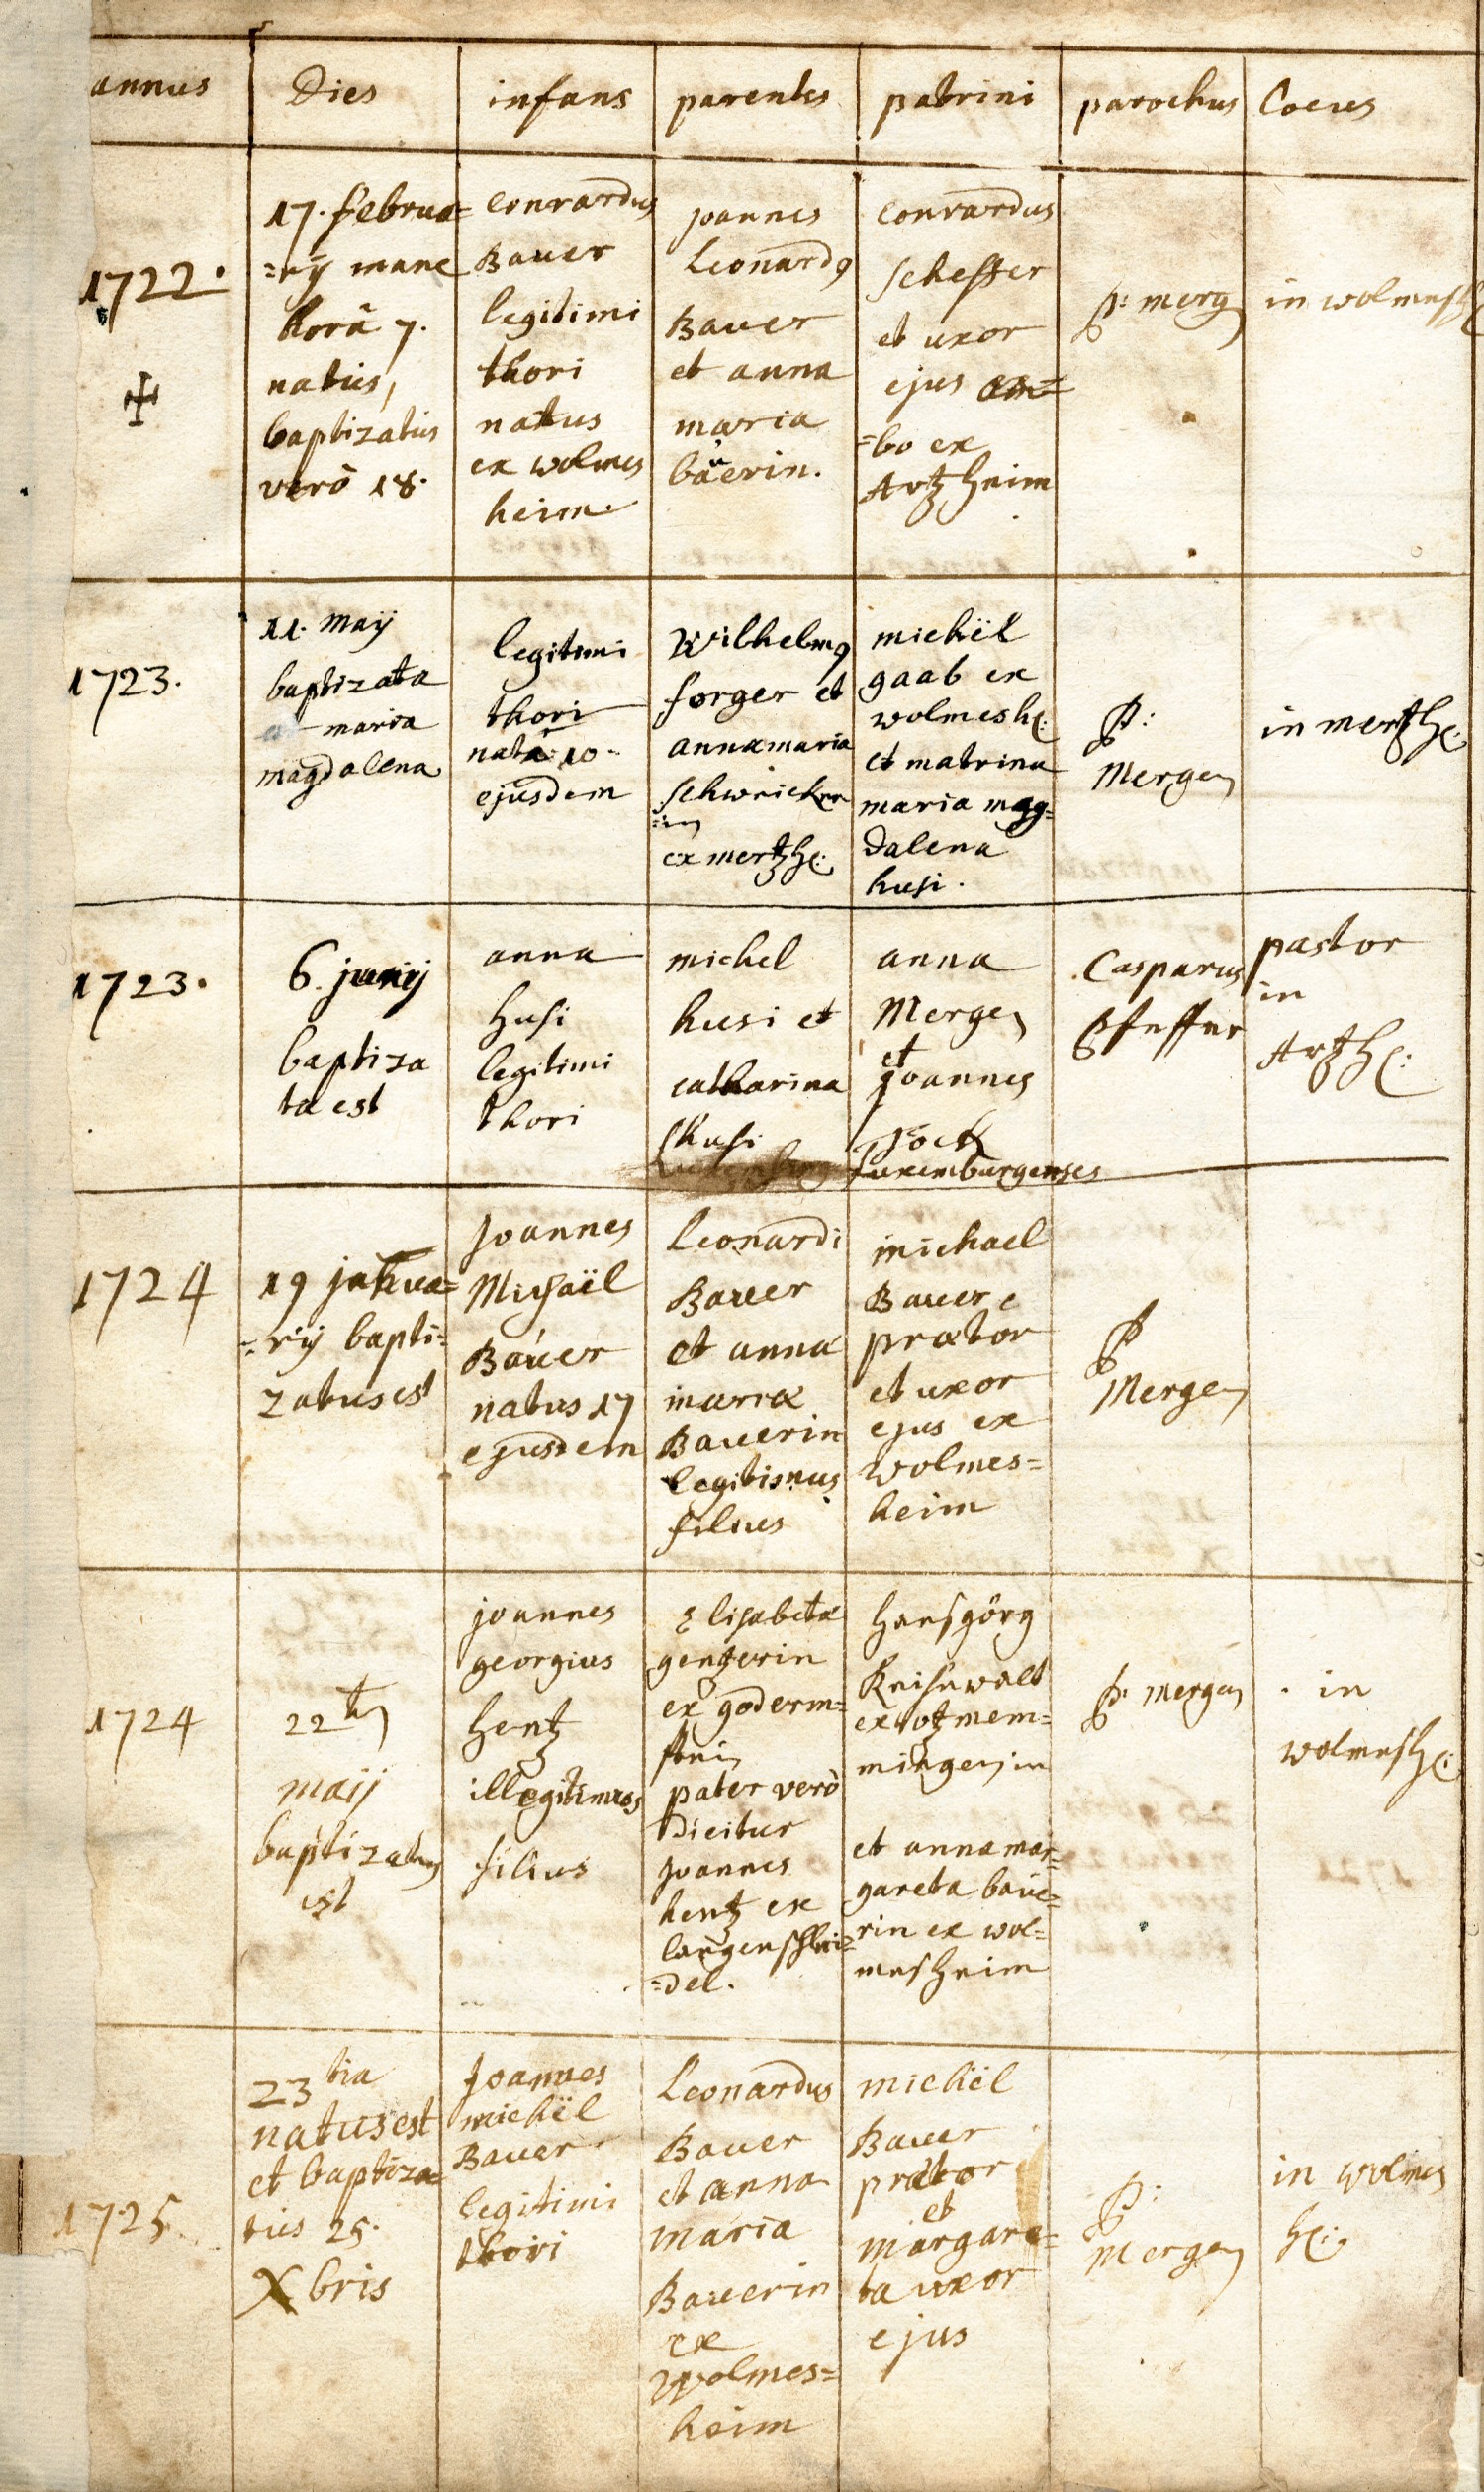 annus Dies infans parentes patrini parochus Locus
1722.
17. februa=
=rij mane
horâ 7.
natus,
baptizatus
verò 18.
conrardus
Bauer
legitimi
thori
natus
ex wolmes
heim.
joannes
Leonardus
Bauer
et anna
maria
bauerin.
conrardus
scheffer
et uxor
ejus am=
=bo ex
Artzheim
P: merg
in wolmesh
1723.
11. maij
baptizata
maria
magdalena
legitimi
thori
nata 10
ejusdem
Wilhelmus
forger et
annamaria
schwricker
=in
ex mertzh:
michël
gaab ex
wolmesh:
et matrina
maria mag=
dalena
husi.
P:
Mergen
in mertzh:
1723.
6. junij
baptiza
ta est
anna
husi
legitimi
thori
michel
husi et
catharina
husi
anna
Mergen
et
joannes
jöck
Luxemburgenses
Casparus
Pfeffer
pastor
in
Artzh:
1724
19 janua=
=rij bapti=
zatus est
Joannes
Michaël
Bauer
natus 17
ejusdem
Leonardi
Bauer
et anna
maria
Bauerin
legitimus
filius
michael
Bauer
prætor
et uxor
ejus ex
wolmes=
heim
P
Mergen
1724
22
maij
baptizatus
est
joannes
georgius
hentz
illegitimus
filius
Elisabeta
gentzerin
ex goderm=
stein
pater verò
dicitur
joannes
hentz ex
langenschlei=
=del.
hansgörg
Kreishwalt
ex votzmem=
mingen in
et annamar=
gareta baue=
rin ex wol=
mesheim
P. Mergen
in
wolmesh:
1725.
23 tia
natus est
et baptiza=
tus 25.
Xbris
Joannes
michël
Bauer
legitimi
thori
Leonardus
Bauer
et anna
maria
Bauerin
ex
wolmes=
heim
michël
Bauer
prætor
et
margare=
ta uxor
ejus
P:
Mergen
in wolmes
h: